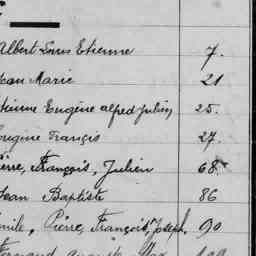 Albert Louis Etienne 7.
Jean Marie 21
Etienne Eugène alfred Julien 25.
Eugene François 27.
Pierre, François, Julien 68
Jean Baptiste 86
Emile, Pierre, François, Joseph. 90
Fernand Auguste